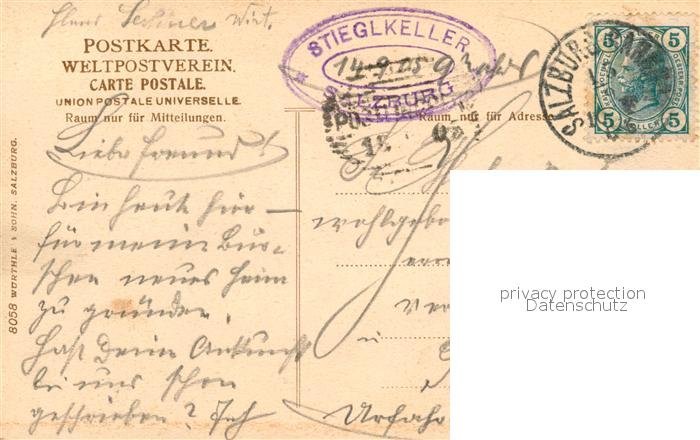 Wirt.
POSTKARTE.
WELTPOSTVEREIN.
CARTE POSTALE.
UNION POSTALE UNIVERSELLE.
Raum nur für Mitteilungen.
STIEGLKELLER
14.9.05 9
SALZBURG
Raum nur für Adresse
SALZBURG
5 5
5 5
8058 WÜRTHLE & SOHN, SALZBURG.
Liebe Freund!
Bin heute hier —
für meine Bur-
schen neues Heim
zu gründen.
Hast Deine Ankunft
bei uns schon
geschrieben? Ich
wohlgebo
in
Urfahr
privacy protection
Datenschutz